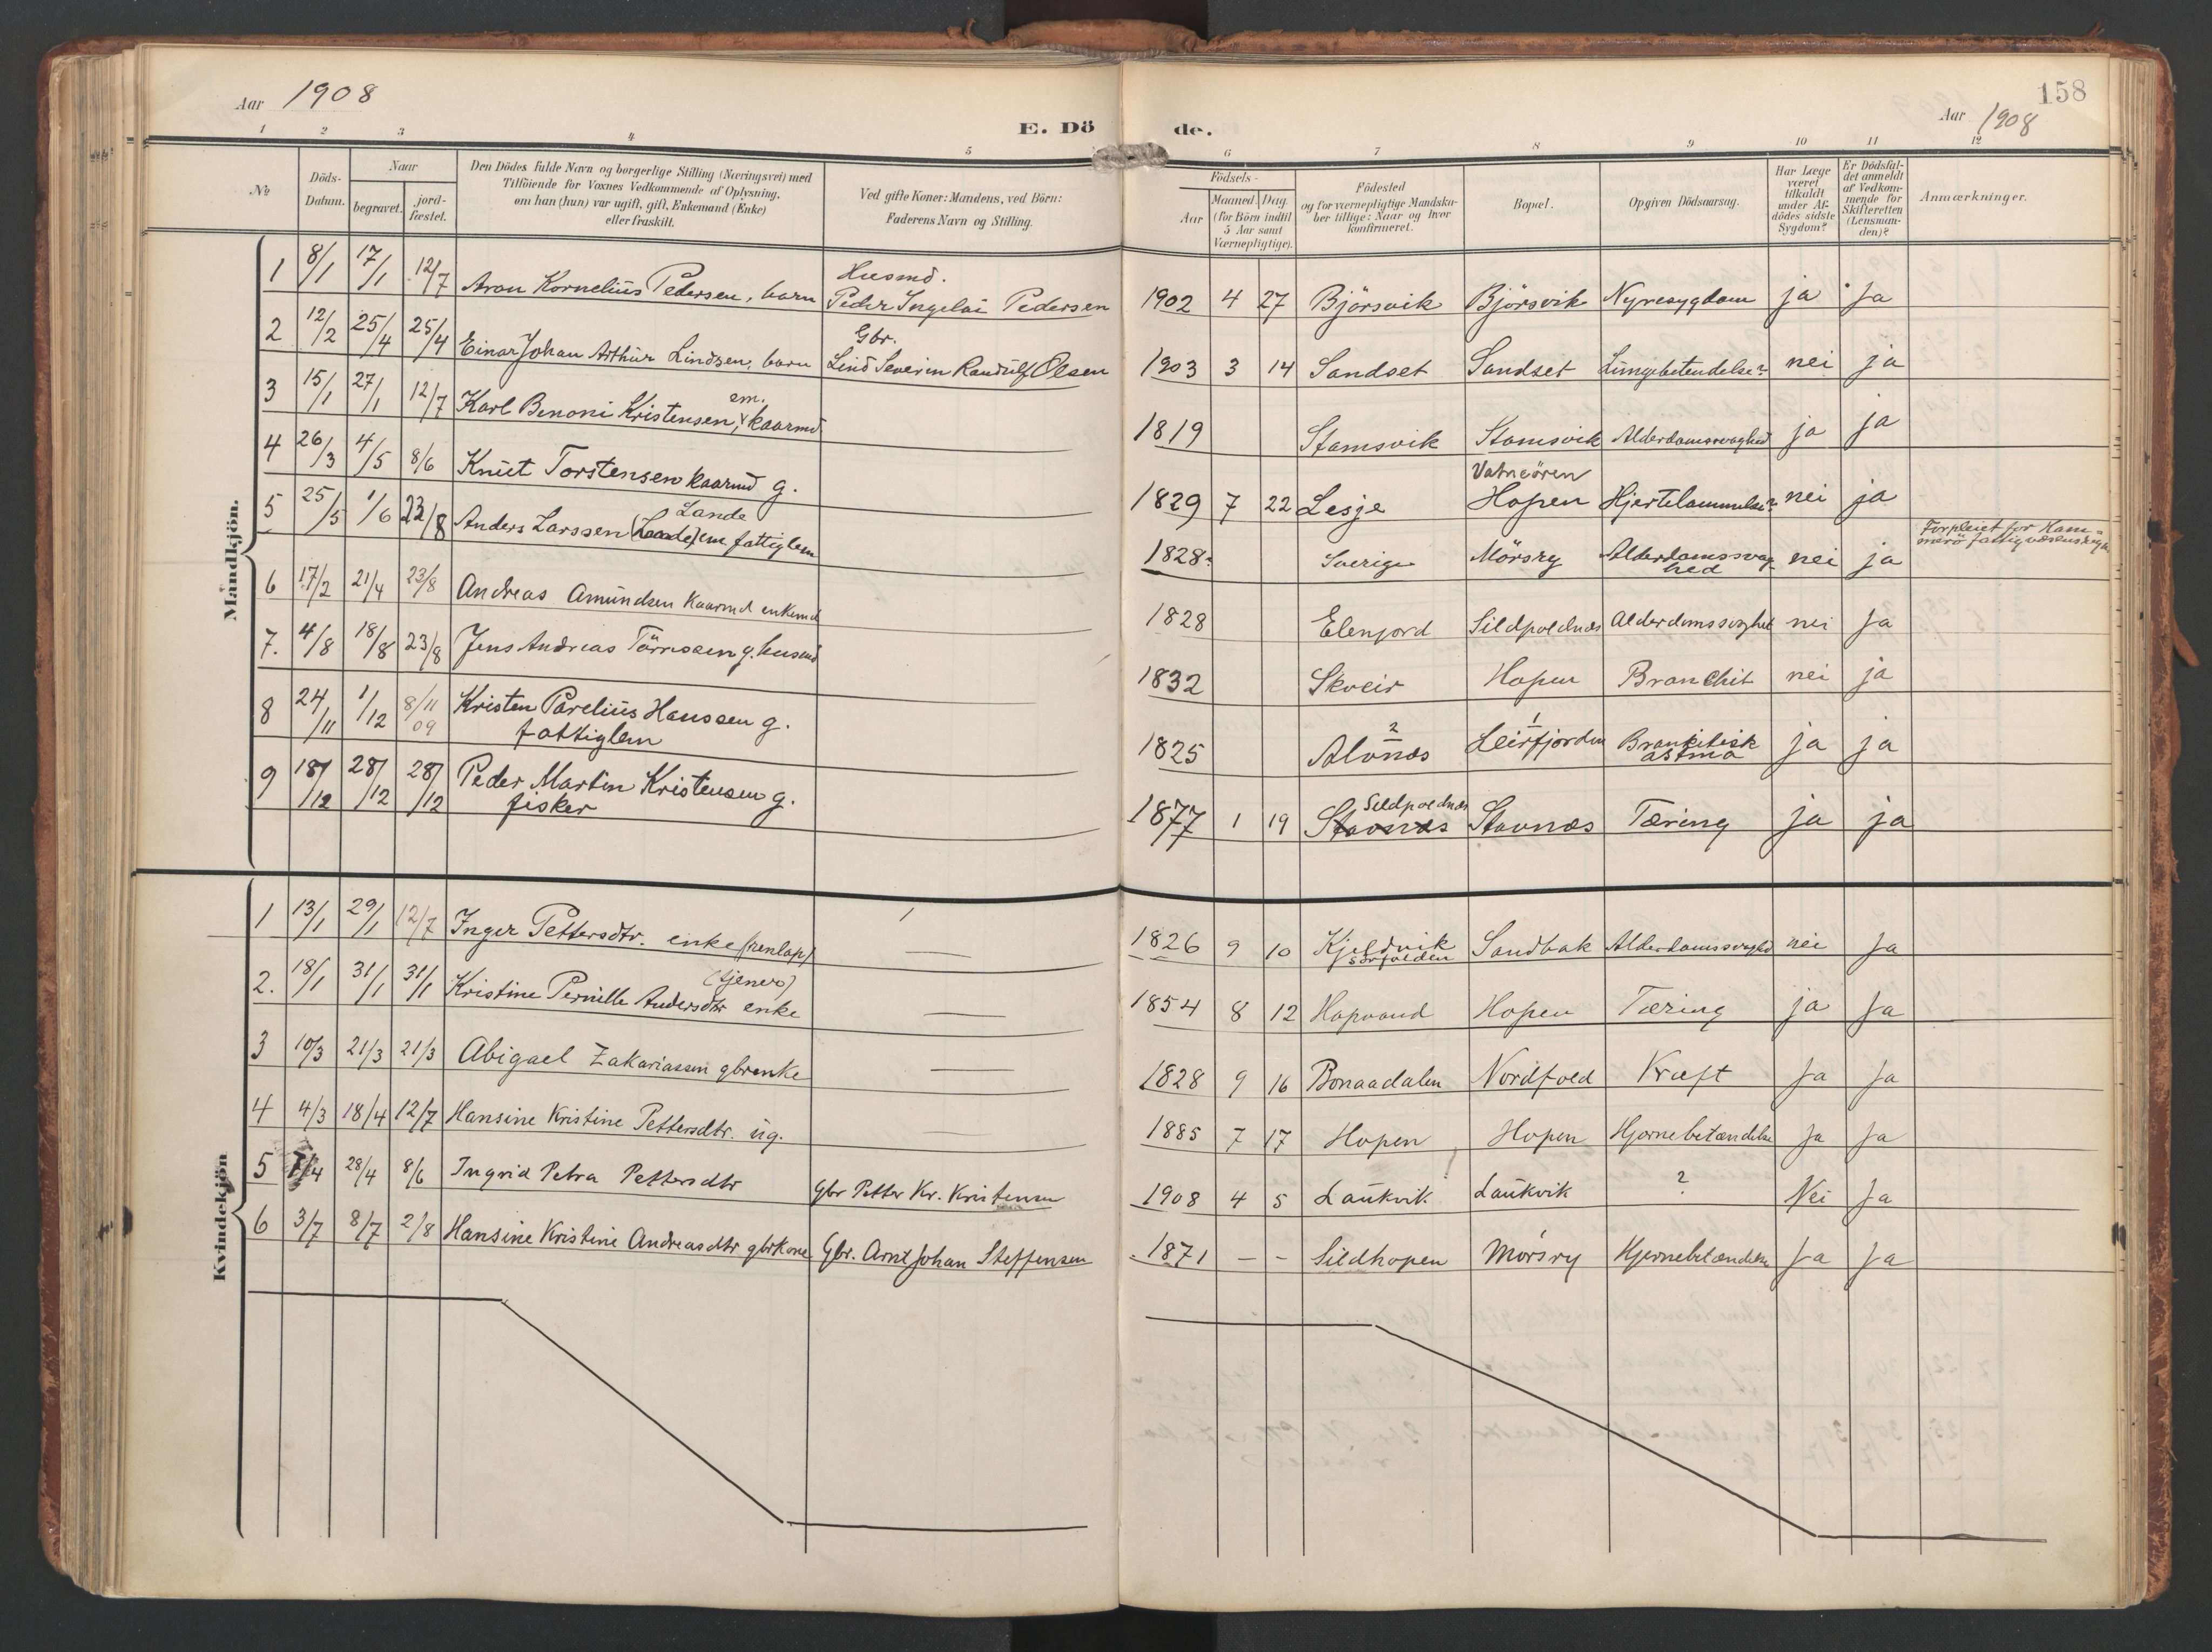 Aar 1908
E. Dö
1 2 3 4 5
№
Döds-
Datum.
Naar
begravet.
jord-
fæstet.
Den Dödes fulde Navn og borgerlige Stilling (Næringsvei) med
Tilföiende for Voxnes Vedkommende af Oplysning,
om han (hun) var ugift, gift, Enkemand (Enke)
eller fraskilt.
Ved gifte Koner: Mandens, ved Börn:
Faderens Navn og Stilling.
Mandkjön.
1 8/1 17/1 12/7 Aron Kornelius Pedersen, barn Husmd. Peder Ingelai Pedersen
2 12/2 25/4 25/4 Einar Johan Arthur Lindsen, barn Gbr. Lind Severin Randulf Olsen
3 15/1 27/1 12/7 Karl Benoni Kristensen, em. kaarmd
4 26/3 4/5 8/6 Knut Torstensen kaarmd g.
5 25/5 1/6 23/8 Anders Larssen (Lande) em fattiglem
Lande
6 17/2 21/4 23/8 Andreas Amundsen kaarmd enkemd
7. 4/8 18/8 23/8 Jens Andreas Törrissen g. husmd
8 24/11 1/12 8/11 09 Kristen Parelius Hanssen g.
fattiglem
9 18/12 28/12 28/12 Peder Martin Kristensen g.
fisker
Kvindekjön
1 13/1 29/1 12/7 Inger Pettersdtr. enke (renlap)
2. 18/1 31/1 31/1 Kristine Pernille Andersdtr enke
(tjener)
3 10/3 21/3 21/3 Abigael Zakariassen gbrenke
4 4/3 18/4 12/7 Hansine Kristine Pettersdtr. ug.
5 7/4 28/4 8/6 Ingrid Petra Pettersdtr Gbr Petter Kr. Kristensen
6 3/7 8/7 2/8 Hansine Kristine Andreasdtr gbrkone Gbr. Arnt Johan Steffensen
158
de.
Aar 1908
6 7 8 9 10 11 12
Födsels-
Aar
Maaned. Dag.
(for Börn indtil
5 Aar samt
Værnepligtige).
Födested
og for værnepligtige Mandska-
ber tillige: Naar og hvor
konfirmeret.
Bopæl.
Opgiven Dödsaarsag.
Har Læge
været
tilkaldt
under Af-
dödes sidste
Sygdom?
Er Dödsfal-
det anmeldt
af Vedkom-
mende for
Skifteretten
(Lensman-
den)?
Anmærkninger.
1902 4 27 Björsvik Björsvik Nyresygdom ja ja
1903 3 14 Sandset Sandset Lungebetendelse? nei ja
1819 Stamsvik Stamsvik Alderdomssvaghed ja ja
Vatnsören
1829 7 22 Lesje Hopen Hjertelammelse? nei ja
1828? Sverige Mörsry Alderdomssvag
hed nei ja
Forpleiet for Ham-
merö fattigvæsens
1828 Elenjord Sildpoldnes Alderdomssvaghet nei ja
1832 Skoeir Hopen Bronchit nei ja
1825 ? Alvnæs Leirfjorden Bronkitisk
astma ja ja
Sildpoldnæs
1877 1 19 Stavnæs Stavnæs Tæring ja ja
1826 9 10 Kjeldvik
Sörfolden Sandbak Alderdomssvaghed nei ja
1854 8 12 Hopvand Hopen Tæring ja ja
1828 9 16 Bonaadalen Nordfold Kræft Ja Ja
1885 7 17 Hopen Hopen Hjernebetændelse Ja Ja
1908 4 5 Laukvik Laukvik ? Nei Ja
1871 – – Sildhopen Mörsry Hjernebetændelse Ja Ja